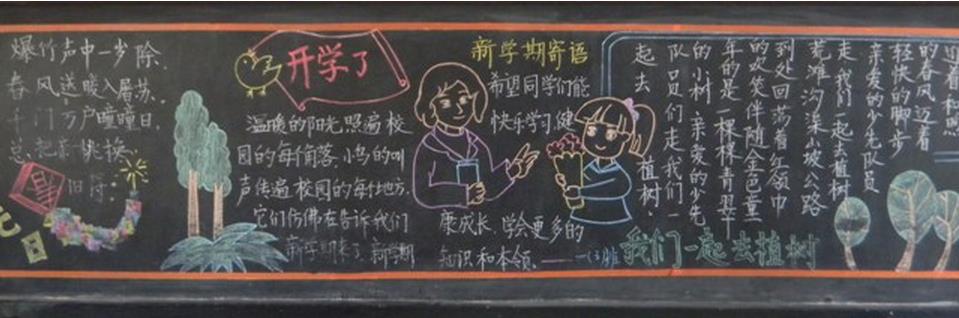 爆竹声中一岁除,
春风送暖入屠苏.
千门万户曈曈日,
总把新桃换
旧符.
开学了
温暖的阳光照遍校
园的每个角落.小鸟的叫
声传遍校园的每个地方.
它们仿佛在告诉我们
新学期来了.新学期
新学期寄语
希望同学们能
快乐学习,健
康成长.学会更多的
知识和本领.
的春风迈着
轻快的脚步
亲爱的少先队员
走,我们一起去植树
荒滩沟渠小坡公路
到处回荡着红领巾
的欢笑伴随金色童
年的是一棵棵青翠
的小树.亲爱的少先
队员们走,我们一
起去植树.
我们一起去植树